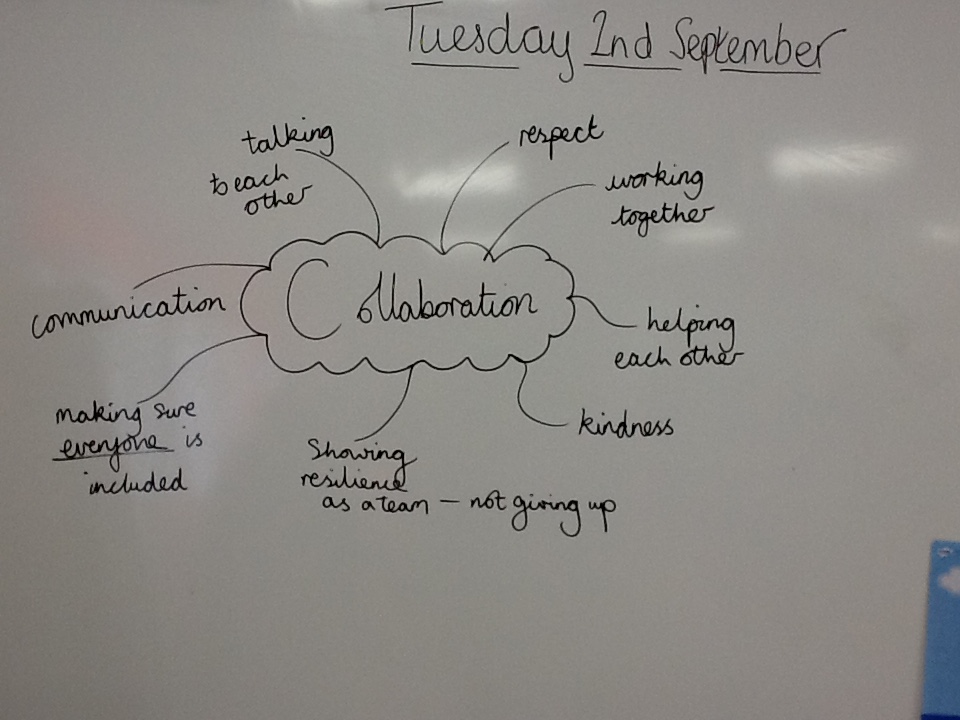 Tuesday 2nd September
talking
to each
other
respect
working
together
communication
Collaboration
helping
each other
making sure
everyone is
included
Showing
resilience
as a team – not giving up
kindness